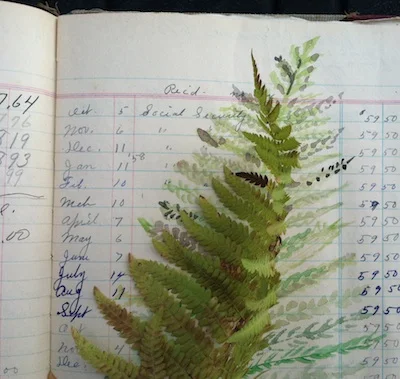 7.64
7.76
7.19
893
99
.00
00
Rec'd.
Oct. 5 Social Security 59 50
Nov. 6 " " 59 50
Dec. 11 " 59 50
Jan 11 '58 59 50
Feb. 10 " 59 50
Mch 10 59 50
April 7 59 50
May 6 59 50
June 7 59 50
July 14 59 50
Aug 11 59 50
Sept 59 50
Oct 59 50
Nov 4 59 50
Dec. 59 50